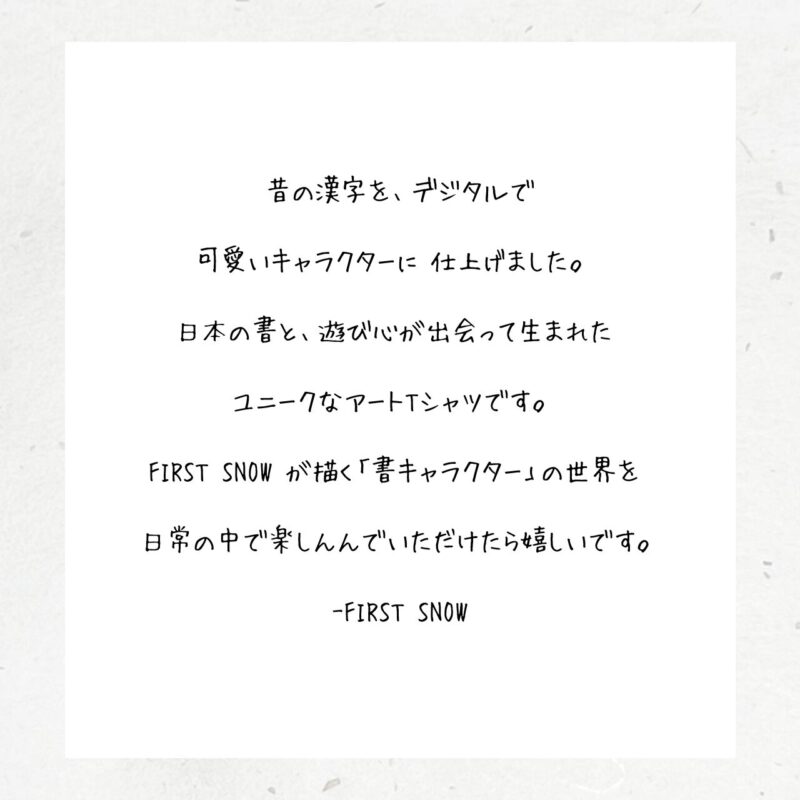 昔の漢字を、デジタルで
可愛いキャラクターに 仕上げました。
日本の書と、遊び心が出会って生まれた
ユニークなアートTシャツです。
FIRST SNOW が描く「書キャラクター」の世界を
日常の中で楽しんんでいただけたら嬉しいです。
-FIRST SNOW